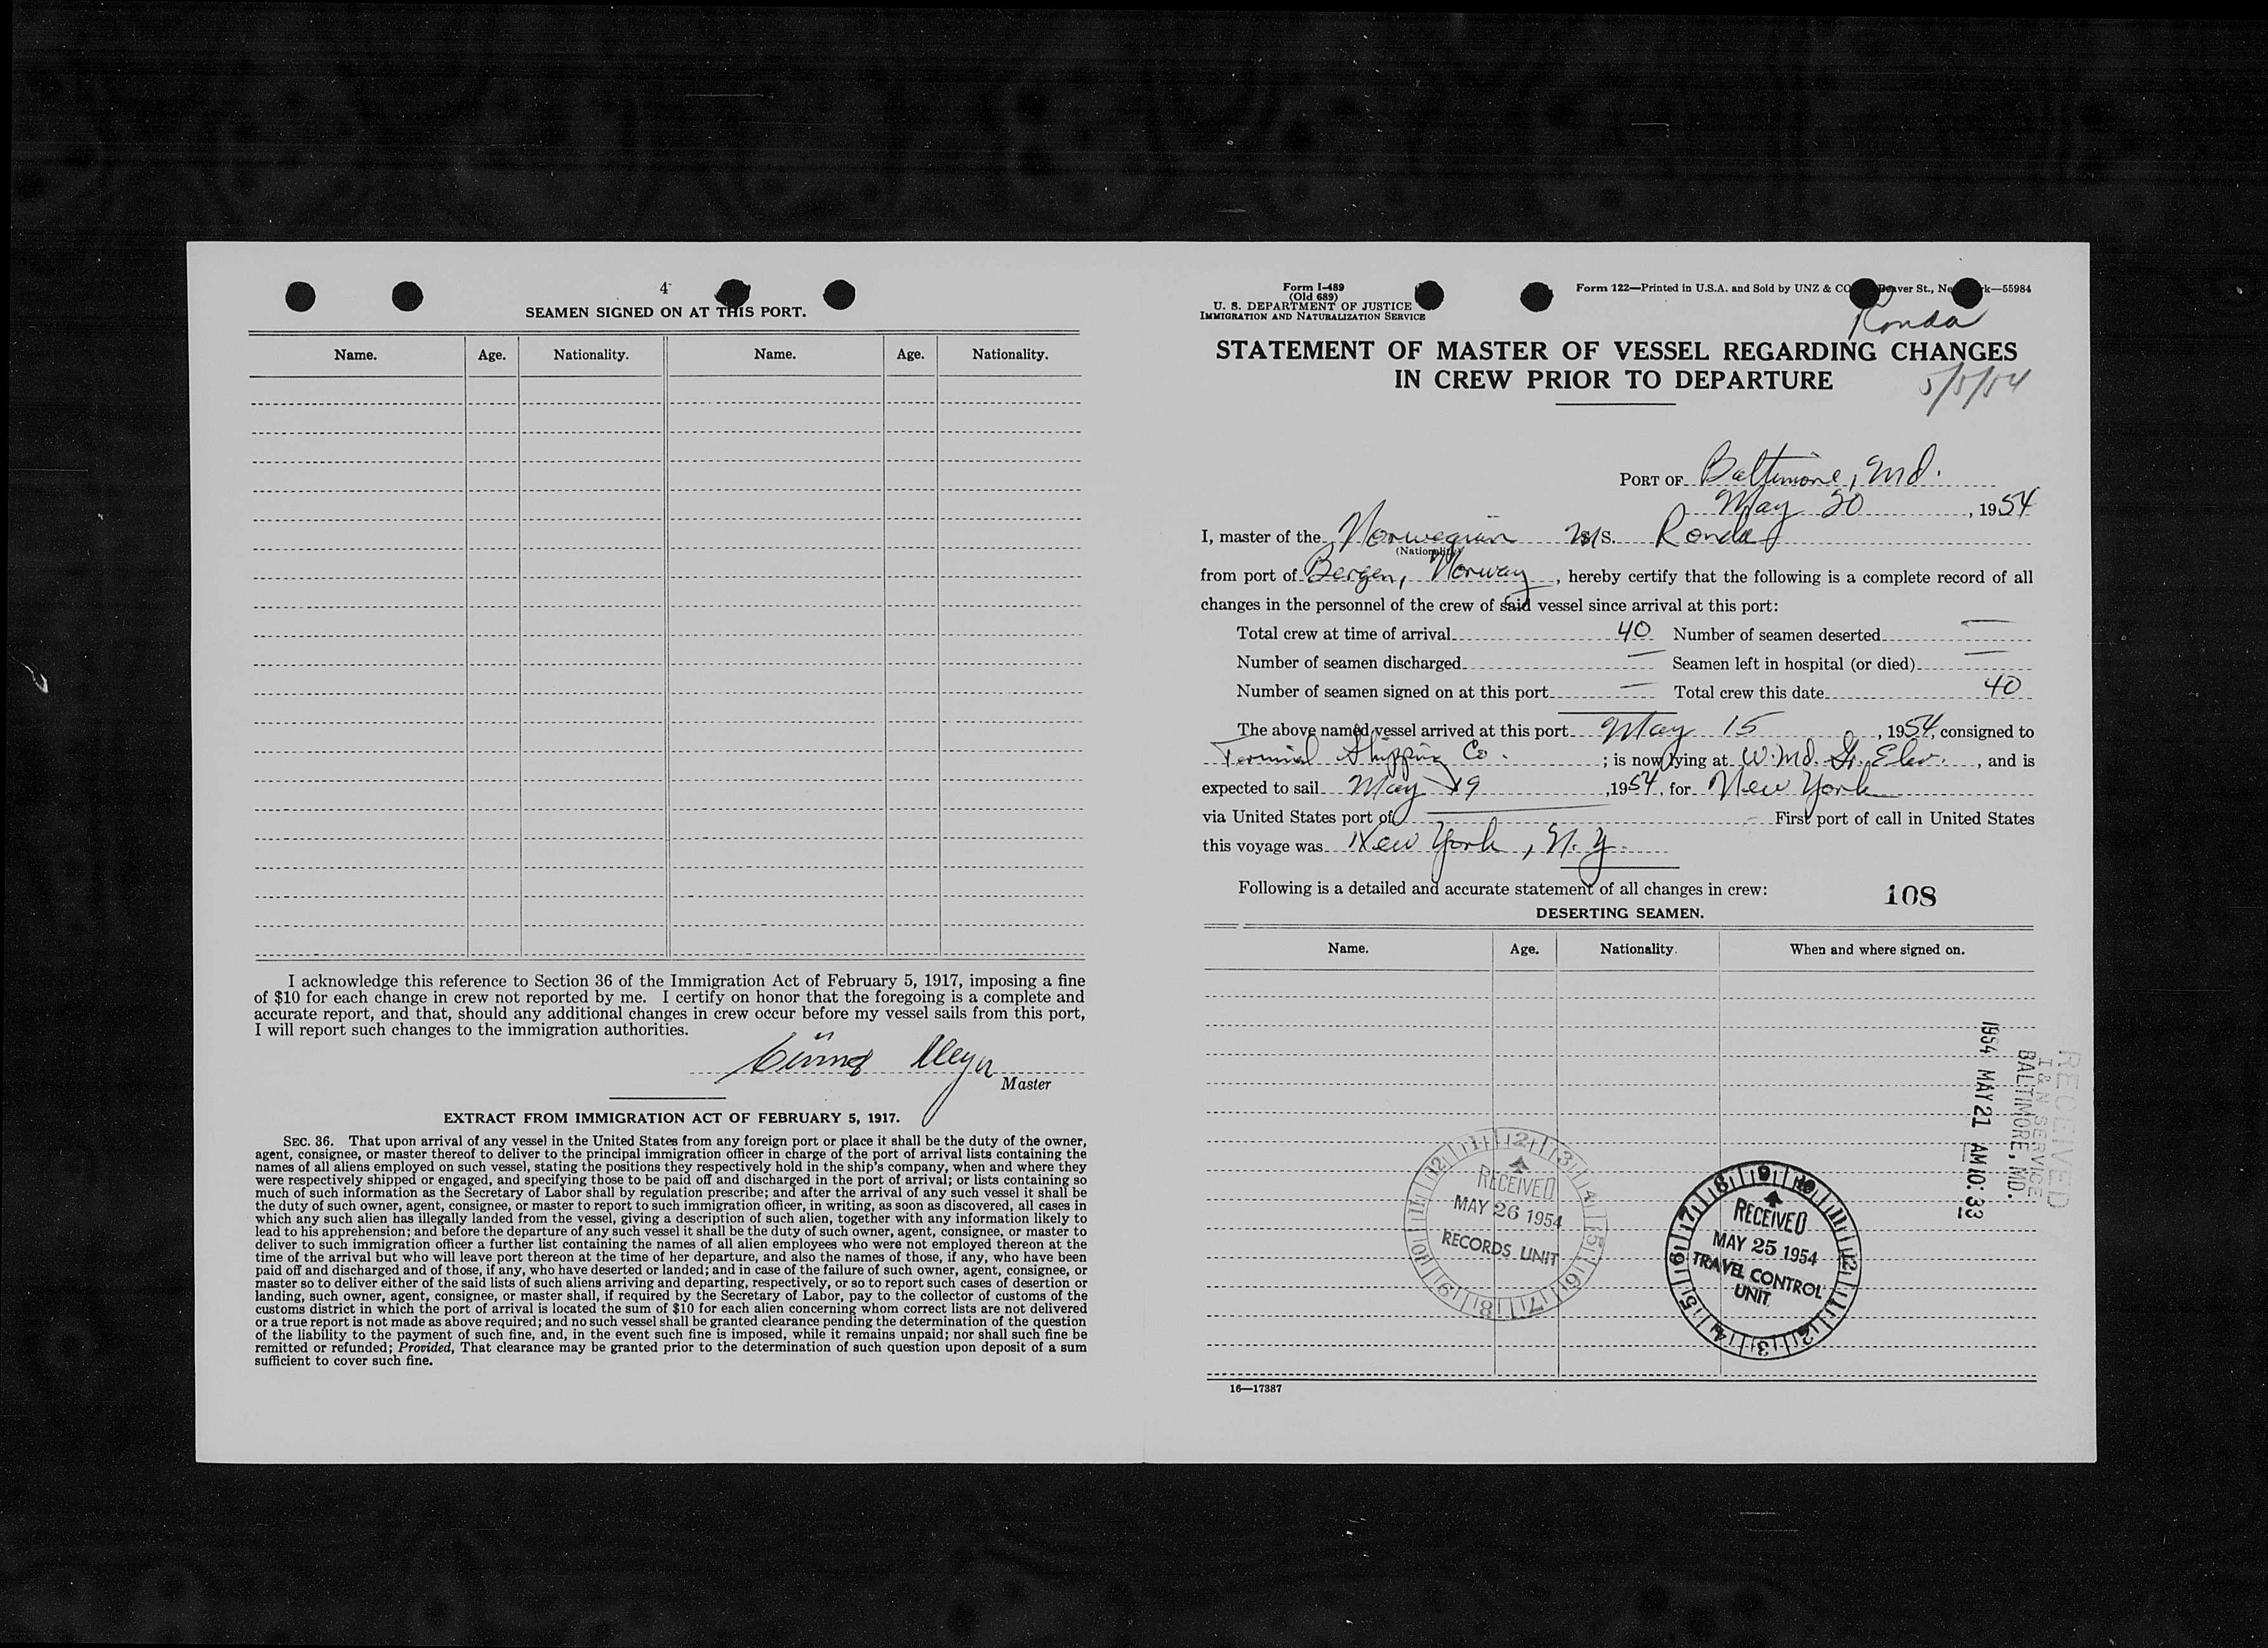 4
SEAMEN SIGNED ON AT THIS PORT.
Name. Age. Nationality. Name. Age. Nationality.
I acknowledge this reference to Section 36 of the Immigration Act of February 5, 1917, imposing a fine
of $10 for each change in crew not reported by me. I certify on honor that the foregoing is a complete and
accurate report, and that, should any additional changes in crew occur before my vessel sails from this port,
I will report such changes to the immigration authorities.
Master
EXTRACT FROM IMMIGRATION ACT OF FEBRUARY 5, 1917.
SEC. 36. That upon arrival of any vessel in the United States from any foreign port or place it shall be the duty of the owner,
agent, consignee, or master thereof to deliver to the principal immigration officer in charge of the port of arrival lists containing the
names of all aliens employed on such vessel, stating the positions they respectively hold in the ship's company, when and where they
were respectively shipped or engaged, and specifying those to be paid off and discharged in the port of arrival; or lists containing so
much of such information as the Secretary of Labor shall by regulation prescribe; and after the arrival of any such vessel it shall be
the duty of such owner, agent, consignee, or master to report to such immigration officer, in writing, as soon as discovered, all cases in
which any such alien has illegally landed from the vessel, giving a description of such alien, together with any information likely to
lead to his apprehension; and before the departure of any such vessel it shall be the duty of such owner, agent, consignee, or master to
deliver to such immigration officer a further list containing the names of all alien employees who were not employed thereon at the
time of the arrival but who will leave port thereon at the time of her departure, and also the names of those, if any, who have been
paid off and discharged and of those, if any, who have deserted or landed; and in case of the failure of such owner, agent, consignee, or
master so to deliver either of the said lists of such aliens arriving and departing, respectively, or so to report such cases of desertion or
landing, such owner, agent, consignee, or master shall, if required by the Secretary of Labor, pay to the collector of customs of the
customs district in which the port of arrival is located the sum of $10 for each alien concerning whom correct lists are not delivered
or a true report is not made as above required; and no such vessel shall be granted clearance pending the determination of the question
of the liability to the payment of such fine, and, in the event such fine is imposed, while it remains unpaid; nor shall such fine be
remitted or refunded; Provided, That clearance may be granted prior to the determination of such question upon deposit of a sum
sufficient to cover such fine.
Form I-489
(Old 689)
U. S. DEPARTMENT OF JUSTICE
IMMIGRATION AND NATURALIZATION SERVICE
Form 122—Printed in U.S.A. and Sold by UNZ & CO Beaver St., Ne k—55984
Ronda
STATEMENT OF MASTER OF VESSEL REGARDING CHANGES
IN CREW PRIOR TO DEPARTURE
5/5/54
PORT OF Baltimore, Md.
May 20, 1954
I, master of the Norwegian M/S. Ronda
(Nationality)
from port of Bergen, Norway, hereby certify that the following is a complete record of all
changes in the personnel of the crew of said vessel since arrival at this port:
Total crew at time of arrival 40 Number of seamen deserted —
Number of seamen discharged — Seamen left in hospital (or died) —
Number of seamen signed on at this port — Total crew this date 40
The above named vessel arrived at this port May 15, 1954, consigned to
Terminal Shipping Co. ; is now lying at W. Md. Gr. Elev., and is
expected to sail May 19, 1954, for New York
via United States port of — First port of call in United States
this voyage was New York, N.Y.
Following is a detailed and accurate statement of all changes in crew:
108
DESERTING SEAMEN.
Name. Age. Nationality. When and where signed on.
RECEIVED
I & N SERVICE
BALTIMORE, MD.
1954 MAY 21 AM 10: 33
RECEIVED
MAY 26 1954
RECORDS UNIT
RECEIVED
MAY 25 1954
TRAVEL CONTROL
UNIT
16—17387